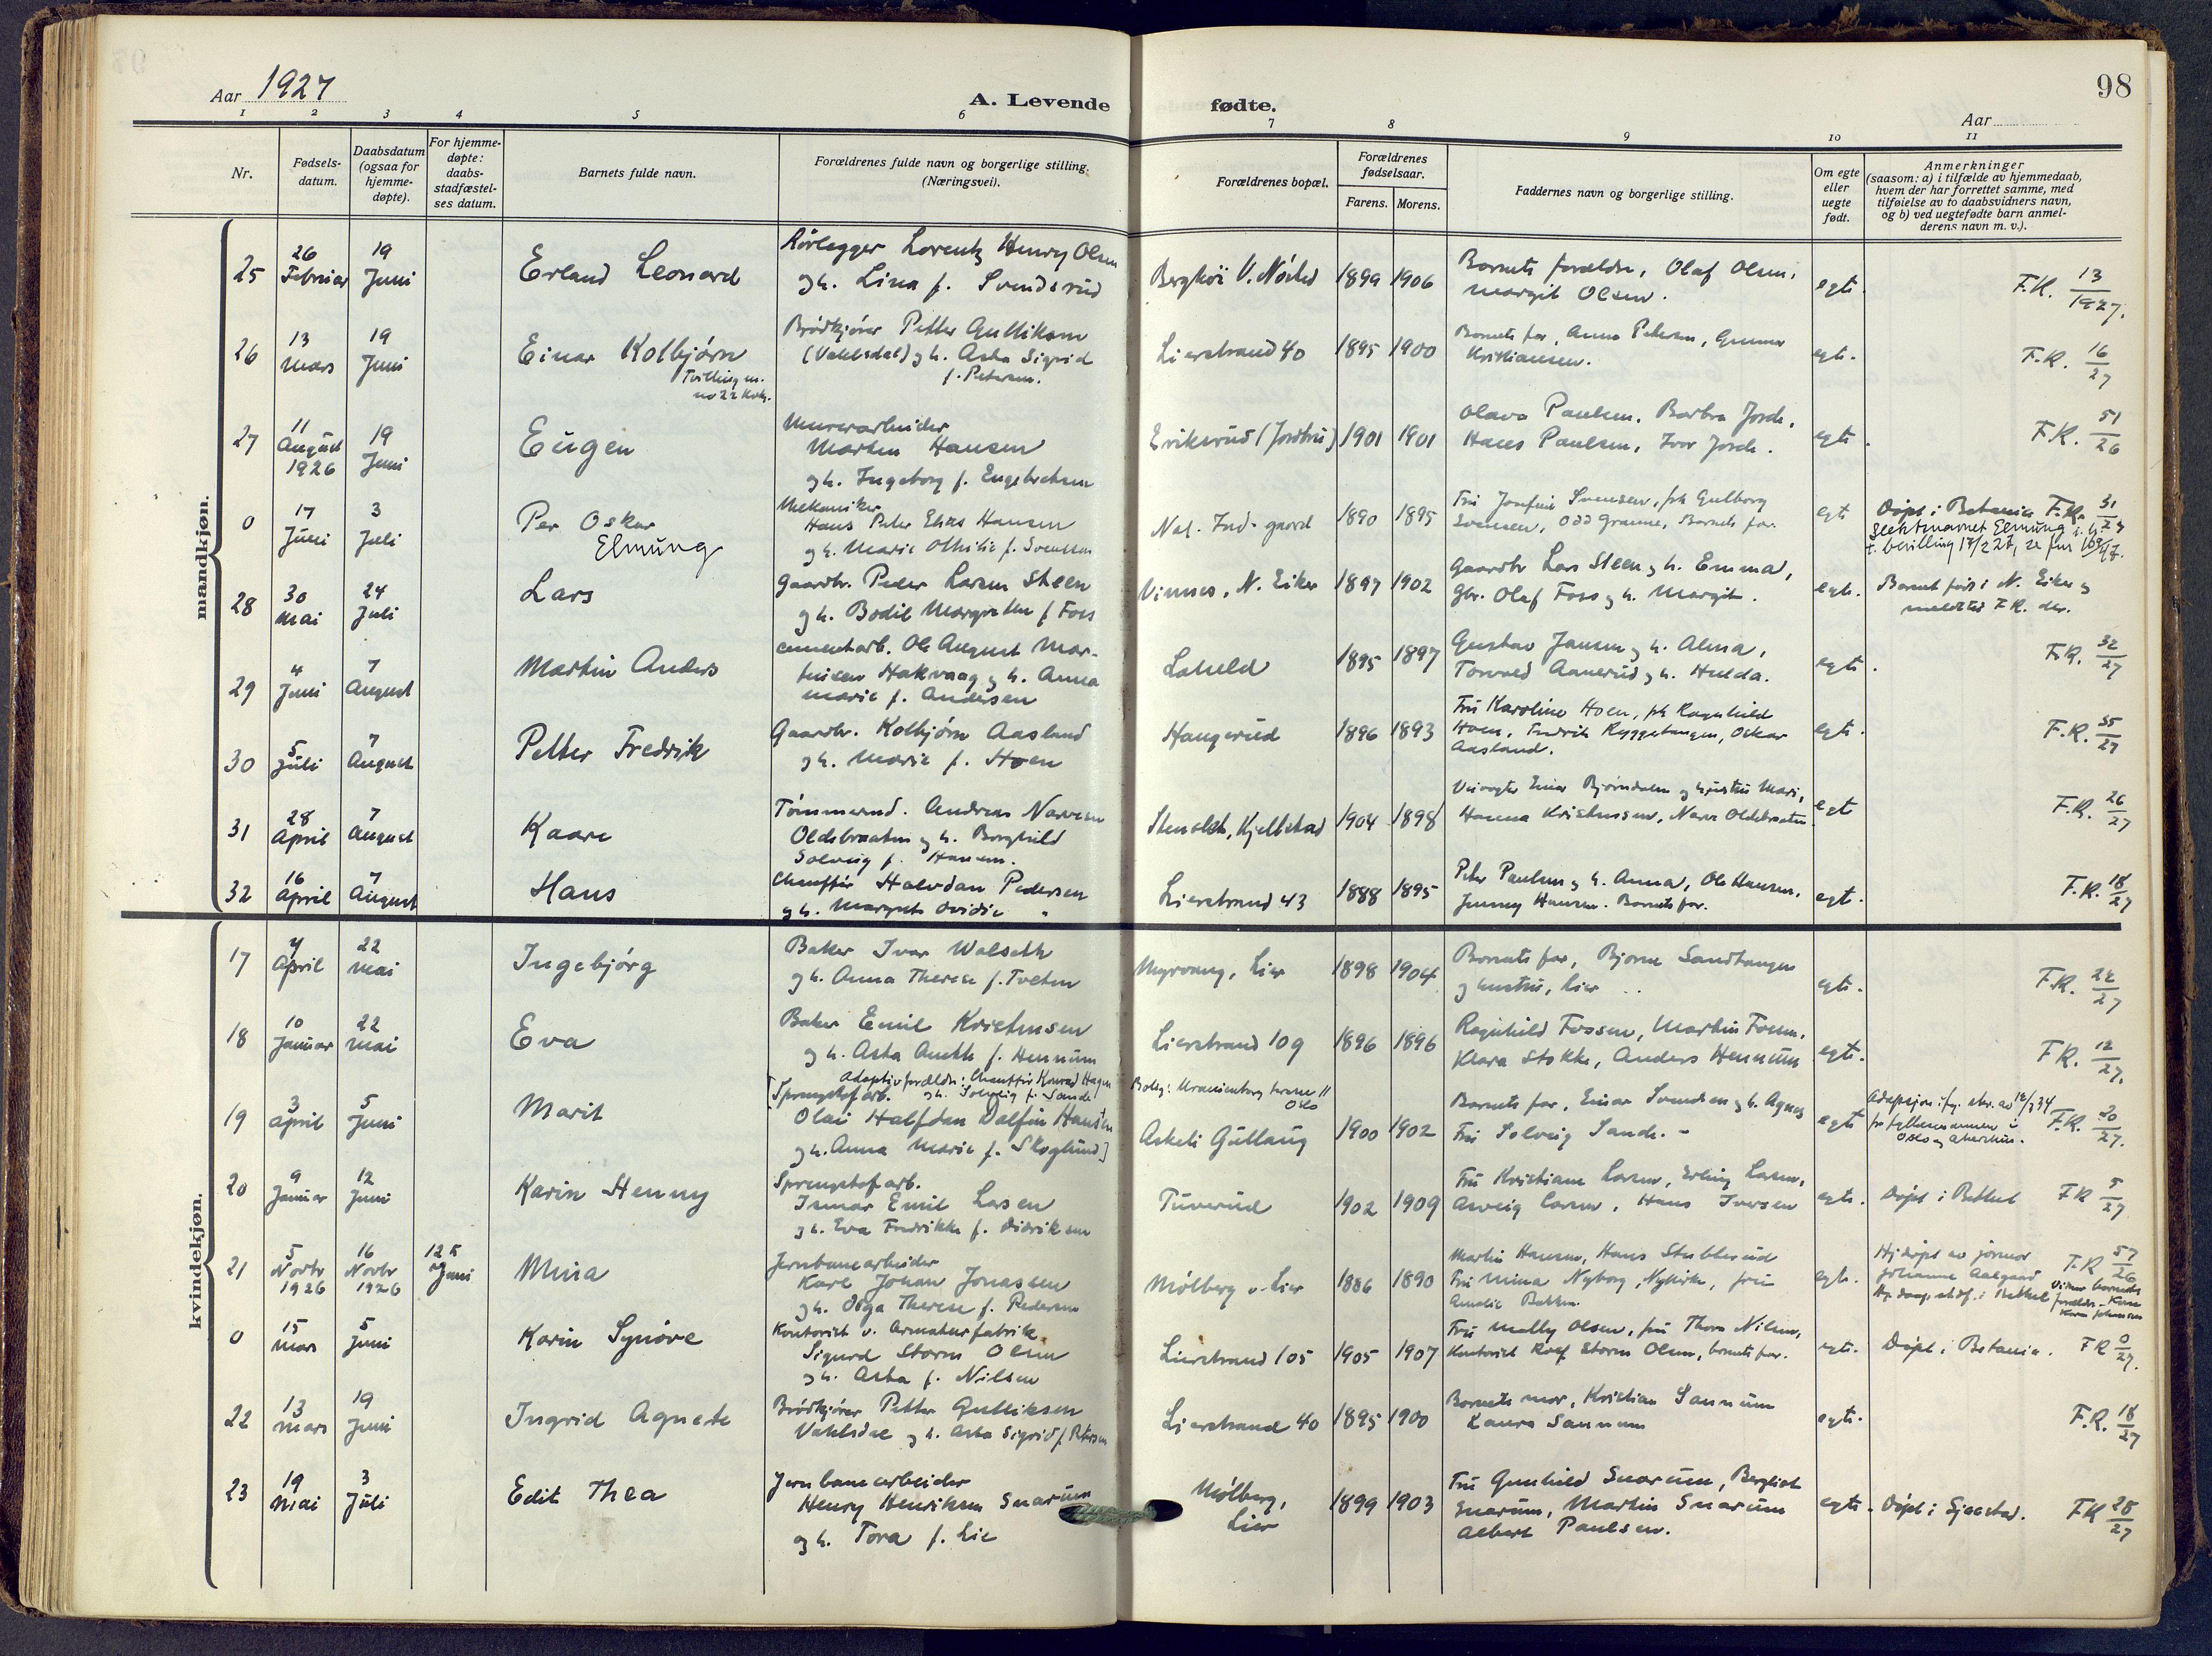 98
Aar 1927
A. Levende fødte.
Aar
1 2 3 4 5 6 7 8 9 10 11
Nr.
Fødsels-
datum.
Daabsdatum
(ogsaa for
hjemme-
døpte).
For hjemme-
døpte:
daabs-
stadfæstel-
ses datum.
Barnets fulde navn.
Forældrenes fulde navn og borgerlige stilling.
(Næringsvei).
Forældrenes bopæl.
Forældrenes
fødselsaar.
Farens. Morens.
Faddernes navn og borgerlige stilling.
Om egte
eller
uegte
født.
Anmerkninger
(saasom: a) i tilfælde av hjemmedaab,
hvem der har forrettet samme, med
tilføielse av to daabsvidners navn,
og b) ved uegtefødte barn anmel-
derens navn m. v.).
mandkjøn.
25
26 Februar
19 Juni
Erland Leonard
Rørlegger Lorentz Henry Olsen
og h. Lina f. Svendsrud
1899 1906
Barnets forældre, Olaf Olsen,
Margit Olsen.
egte.
F.K. 13/1927.
26
13 Mars
19 Juni
Einar Kolbjørn
Tvilling m.
no 22 Kvk.
Brødkjører Petter Gulliksen
(Vahlsdal) og h. Asta Sigrid
f. Petersen.
Lierstrand 40
1895 1900
Barnets far, Anna Petersen, Gunnar
Kristiansen.
egte.
F.K. 16/27
27
11 August 1926
19 Juni
Eugen
Murerarbeider
Morten Hansen
og h. Ingeborg f. Engebretsen
Eriksrud (Jordbru)
1901 1901
Olava Paulsen, Barbra Jorde,
Hans Paulsen, Ivar Jorde.
egte.
F.K. 51/26
0
17 Juni
3 Juli
Per Oskar
Elmung
Mekaniker
Hans Peter Elias Hansen
og h. Marie Othilie f. Svensson
1890 1895
Fru Josefine Svensson, frk Gulborg
Svensson, Odd Granne, Barnets far.
egte
Døpt i Betania F.K. 31/27
Slektsnavnet Elmung i h.
t. bevilling
28
30 Mai
24 Juli
Lars
Gaardbr. Peder Larsen Steen
og h. Bodil Margrethe f Foss
Vinnes, N. Eiker
1897 1902
Gaardbr Lars Steen og h. Emma,
Gbr. Olaf Foss og h. Margit.
egte.
Barnet født i N. Eiker og
meldt til F.K. der.
29
4 Juni
7 August
Martin Anders
Cementarb. Ole August Mar-
tinsen Hakvaag og h. Anna
Marie f. Andersen
Laheld
1895 1897
Gustav Jansen og h. Alma,
Torvald Aanerud og h. Hulda.
egte.
F.K. 32/27
30
5 Juli
7 August
Petter Fredrik
Gaardbr. Kolbjørn Aasland
og h. Marie f. Hoen
Haugerud
1896 1893
Fru Karoline Hoen, frk Ragnhild
Hoen, Fredrik Ryggetangen, Oskar
Aasland.
egte.
F.K. 35/27
31
28 April
7 August
Kaare
Tømmermd. Andreas Narvesen
Oldebraaten og h. Borghild
Solveig f. Hansen.
Stenslet, Kjellstad
1904 1898
Veivogter Einar Bjørndalen og hustru Mari,
Hanna Kristensen, Narve Oldebraaten
egte
F.K. 26/27
32
16 April
7 August
Hans
Chauffør Halvdan Pedersen
og h. Margrete Ovidie "
Lierstrand 43
1888 1895
Peter Paulsen og h. Anna, Ole Hansen,
Jenny Hansen. Barnets far.
egte.
F.K. 18/27
kvindekjøn.
17
4 April
22 Mai
Ingebjørg
Baker Ivar Walseth
og h. Anna Therese f. Tveten
Myrvang, Lier
1898 1904
Barnets far, Bjarne Sandtangen
og hustru, Lier
egte.
F.K. 22/27
18
10 Januar
22 Mai
Eva
Baker Emil Kristensen
og h. Asta Aneth f. Hennum
Lierstrand 109
1896 1896
Ragnhild Fossen, Martin Fossen,
Klara Stokke, Anders Hennum
egte.
F.K. 12/27.
19
3 April
5 Juni
Marit
Adoptivforældre: Chauffør Konrad Hagen
og h. Solveig f. Sande
[Sprengstofarb.
Olai Halfdan Dalfin Hansen
og h. Anna Marie f. Skoglund]
Bolig: Uranienborg terrasse 11
Oslo
Askeli Gullaug
1900 1902
Barnets far, Einar Svendsen og h. Agnes
Fru Solveig Sande. -
egte
Adopsjon ifg. skr. av 12/7 34
fr fylkesmannen i
Oslo og Akershus.
F.K. 20/27.
20
9 Januar
12 Juni
Karin Henny
Sprengstofarb.
Ismar Emil Larsen
og h. Eva Fredrikke f. Didriksen
Tuverud
1902 1909
Fru Kristiane Larsen, Erling Larsen,
Solveig Larsen, Hans Iversen
egte.
Døpt i Bethel
F.K 5/27
21
5 Novbr 1926
16 Novbr 1926
12te Juni
Mina
Jernbanearbeider
Karl Johan Jonassen
og h. Olga Therese f. Pedersen
Mølberg v. Lier
1886 1890
Martin Hansen, Hans Stubberud
Fru Mina Nyborg, Nykirke, fru
Amalie Bakken.
egte.
Hj.døpt av jormor
Johanne Aalgaard
F.K 57/26
0
15 Mars
5 Juni
Karin Synøve
Kontorist v. Armaturfabrik.
Sigurd Storm Olsen
og h. Asta f. Nilsen
Lierstrand 105
1905 1907
Fru Molly Olsen, fru Thora Nilsen,
Kontorist Rolf Storm Olsen, barnets far.
egte.
Døpt i Betania.
FK 0/27.
22
13 Mars
19 Juni
Ingrid Agnete
Brødkjører Petter Gulliksen
Vahlsdal og h. Asta Sigrid f. Petersen
Lierstrand 40
1895 1900
Barnets mor, Kristian Sannum
Laura Sannum
egte.
F.K. 18/27
23
19 Mai
3 Juli
Edit Thea
Jernbanearbeider
Henry Henriksen Snarum
og h. Tora f. Lie
Mølberg,
Lier
1899 1903
Fru Gunhild Snarum, Bergliot
Snarum, Martin Snarum
Albert Paulsen.
egte.
Døpt i Sjåstad.
FK 28/27